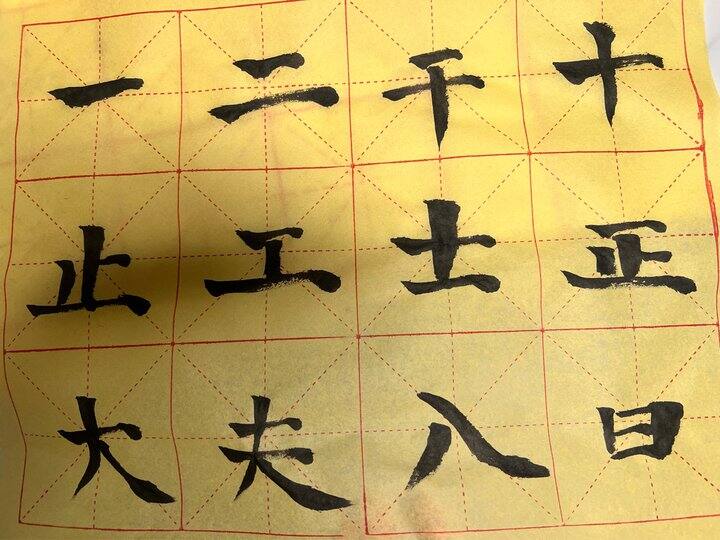 一二干十
止工士正
大夫八日